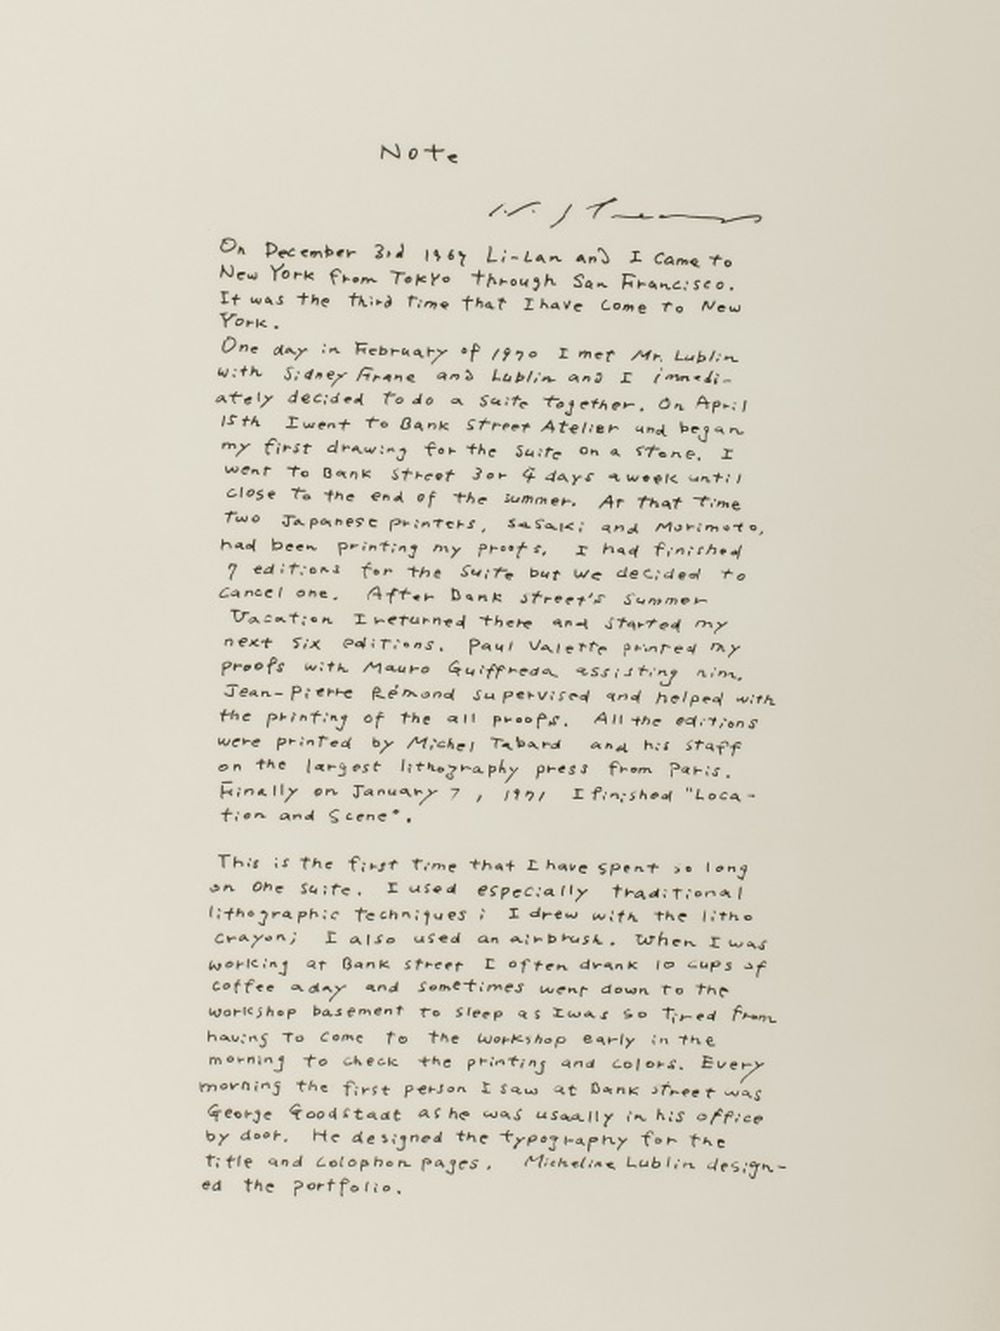 Note
On December 3rd 1969 Li-Lan and I came to
New York from Tokyo through San Francisco.
It was the third time that I have come to New
York.
One day in February of 1970 I met Mr. Lublin
with Sidney Frane and Lublin and I immedi-
ately decided to do a suite together. On April
15th I went to Bank Street Atelier and began
my first drawing for the suite on a stone. I
went to Bank Street 3 or 4 days a week until
close to the end of the summer. At that time
two Japanese printers, Sasaki and Morimoto,
had been printing my proofs. I had finished
7 editions for the suite but we decided to
cancel one. After Bank street's summer
vacation I returned there and started my
next six editions. Paul Valette printed my
proofs with Mauro Guiffreda assisting him.
Jean-Pierre Rémond supervised and helped with
the printing of the all proofs. All the editions
were printed by Michel Tabard and his staff
on the largest lithography press from Paris.
Finally on January 7, 1971 I finished "Loca-
tion and Scene".
This is the first time that I have spent so long
on one suite. I used especially traditional
lithographic techniques; I drew with the litho
crayon; I also used an airbrush. When I was
working at Bank street I often drank 10 cups of
coffee a day and sometimes went down to the
workshop basement to sleep as I was so tired from
having to come to the workshop early in the
morning to check the printing and colors. Every
morning the first person I saw at Bank street was
George Goodstadt as he was usually in his office
by door. He designed the typography for the
title and colophon pages. Micheline Lublin design-
ed the portfolio.